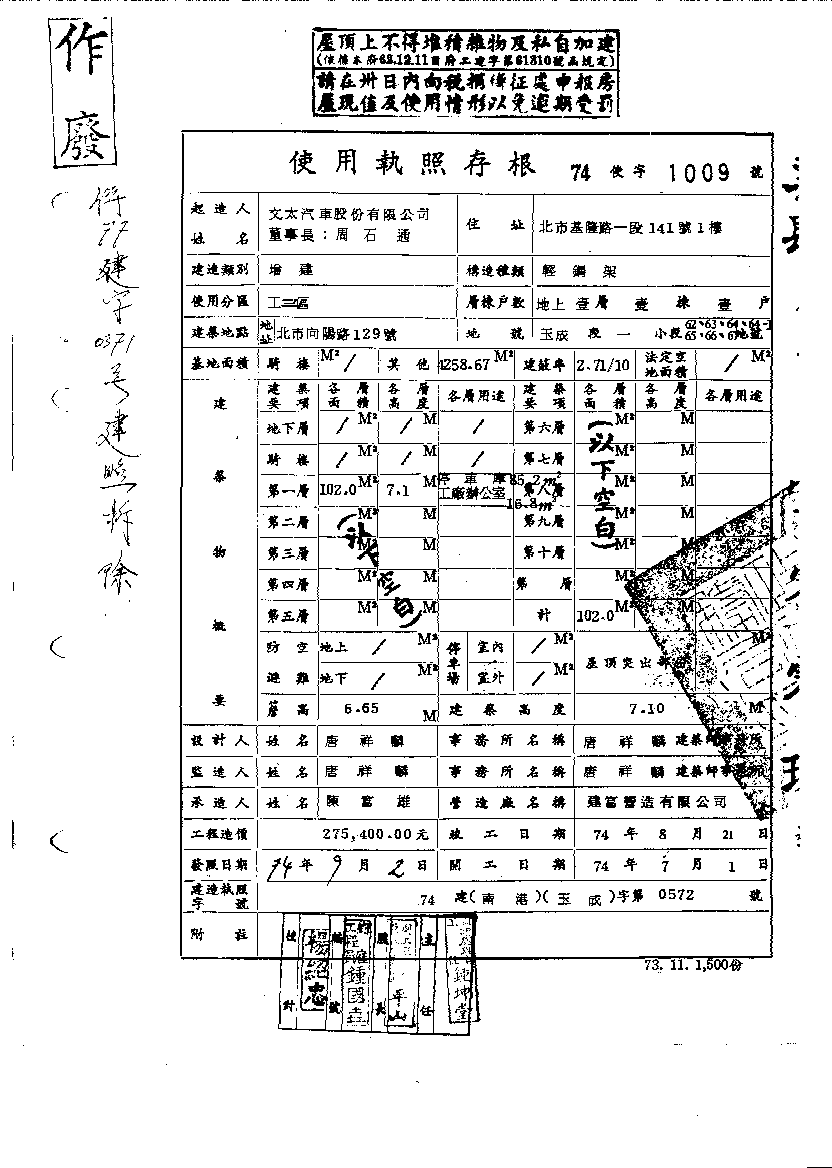 作廢
屋頂上不得堆積雜物及私自加建
(依據本府63.12.11日府工建字第61810號函規定)
請在卅日內向稅捐稽征處申報房
屋現值及使用情形以免逾期受罰
使用執照存根 74 使字 1009 號
起造人姓名 文太汽車股份有限公司 董事長：周石通 住址 北市基隆路一段141號1樓
建造類別 增建 構造種類 輕鋼架
使用分區 工三區 層棟戶數 地上壹層壹棟壹戶
建築地點 地址 北市向陽路129號 地號 玉成段一小段 62、63、64、64-1 65、66、67地號
基地面積 騎樓 M² / 其他 4258.67 M² 建蔽率 2.71/10 法定空地面積 / M²
建築物概要 建築要項 各層面積 各層高度 各層用途 建築要項 各層面積 各層高度 各層用途
地下層 / M² / M / 第六層 M² M
騎樓 / M² / M / 第七層 M² M
第一層 102.0 M² 7.1 M 停車庫 85.2m² 工廠辦公室 16.8m² 第八層 M² M
第二層 M² M 第九層 M² M
第三層 M² M 第十層 M² M
第四層 M² M 第 層 M² M
第五層 M² M 計 102.0 M² M
(以下空白)
(以下空白)
防空避難 地上 / M² 停車場 室內 / M² 屋頂突出部份 M²
地下 / M² 室外 / M²
簷高 6.65 M 建築高度 7.10 M
設計人 姓名 唐祥麟 事務所名稱 唐祥麟建築師事務所
監造人 姓名 唐祥麟 事務所名稱 唐祥麟建築師事務所
承造人 姓名 陳富雄 營造廠名稱 建富營造有限公司
工程造價 275,400.00元 竣工日期 74年8月21日
發照日期 74年9月2日 開工日期 74年7月1日
建造執照字號 74 建(南港)(玉成)字第 0572 號
附註
73.11.1,500份
主任
股長
核號
校對
77建字0371号建照拆除